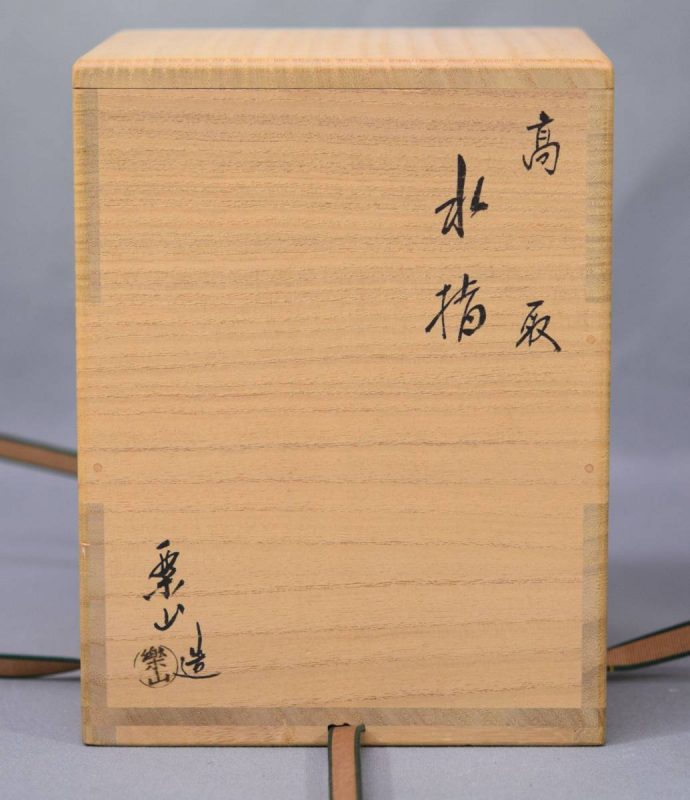 高取
水指
楽山造
樂山